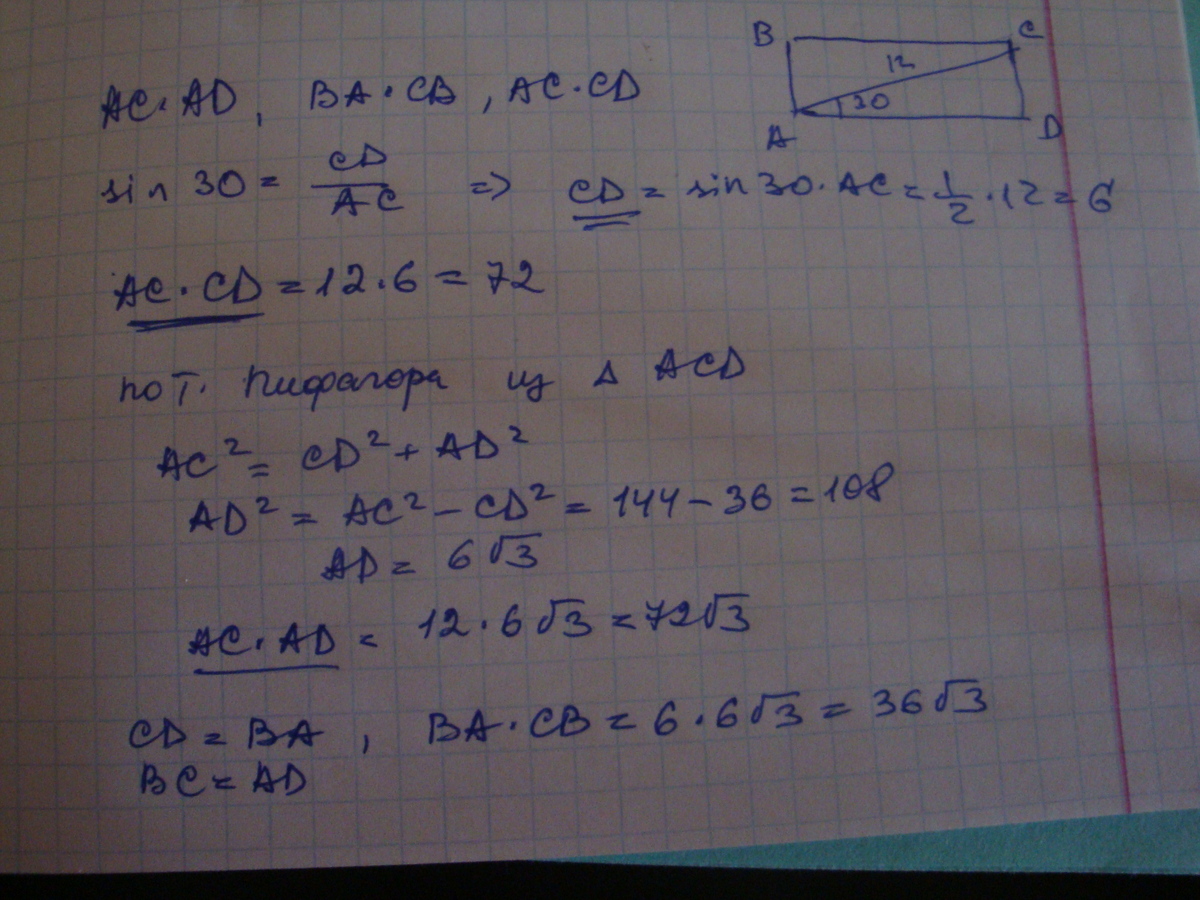 B C
12
30
A D
AC·AD, BA·CB, AC·CD
sin 30 = CD/AC => CD = sin 30·AC = 1/2·12 = 6
AC·CD = 12·6 = 72
по т. Пифагора из Δ ACD
AC² = CD² + AD²
AD² = AC² - CD² = 144 - 36 = 108
AD = 6√3
AC·AD = 12·6√3 = 72√3
CD = BA, BA·CB = 6·6√3 = 36√3
BC = AD